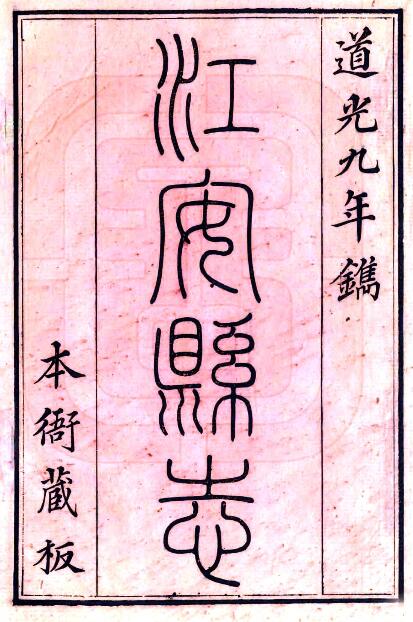 道光九年鐫
江安縣志
本衙藏板